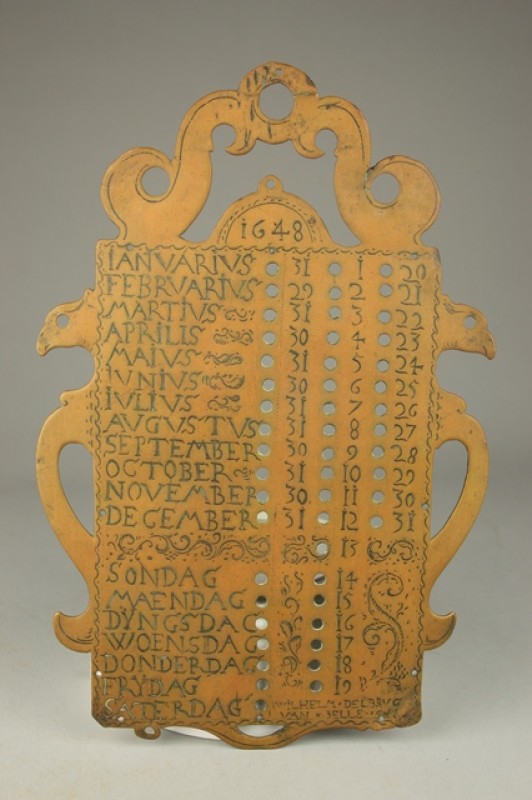 1648
IANVARIVS 31 1 20
FEBRVARIVS 29 2 21
MARTIVS 31 3 22
APRILIS 30 4 23
MAIVS 31 5 24
IVNIVS 30 6 25
IVLIVS 31 7 26
AVGVSTVS 31 8 27
SEPTEMBER 30 9 28
OCTOBER 31 10 29
NOVEMBER 30 11 30
DECEMBER 31 12 31
13
SONDAG 14
MAENDAG 15
DYNGSDAG 16
WOENSDAG 17
DONDERDAG 18
FRYDAG 19
SATERDAG WILHELM DELBRVG
VAN